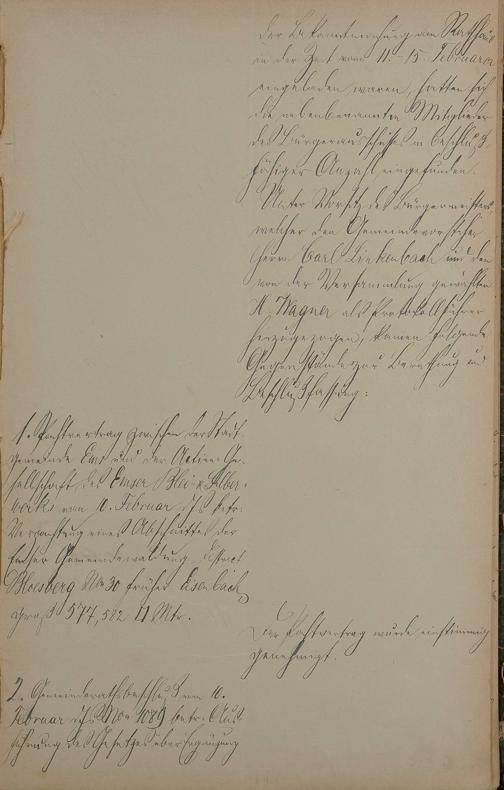 der Bekanntmachung am Rathhaus
in der Zeit vom 11.-15. Februar cr
eingeladen waren, hatten sich
die nebenbenannten Mitglieder
des Bürgerausschußes in beschluß-
fähiger Anzahl eingefunden.
Unter Vorsitz des Bürgermeisters
welcher den Gemeindevorsteher
Herrn Carl Linkenbach und den
von der Versammlung gewählten
H. Wagner als Protokollführer
herzugezogen, kamen folgende
Gegenstände zur Berathung und
Beschlußfassung:
1. Pachtvertrag zwischen der Stadt-
gemeinde Ems und der Actien Ge-
sellschaft des Emser Blei & Silber-
werks vom 10. Februar d Js betr.
Verpachtung eines Abschnittes der
Emser Gemeindewaldung District
Bloesberg No 30 früher Eisenbach,
groß 577,582 □ Mtr.
Der Pachtvertrag wurde einstimmig
genehmigt.
2. Gemeinderathsbeschluß vom 10.
Februar d Js No 1089 betr. Aus-
führung des Gesetzes über Ergänzung